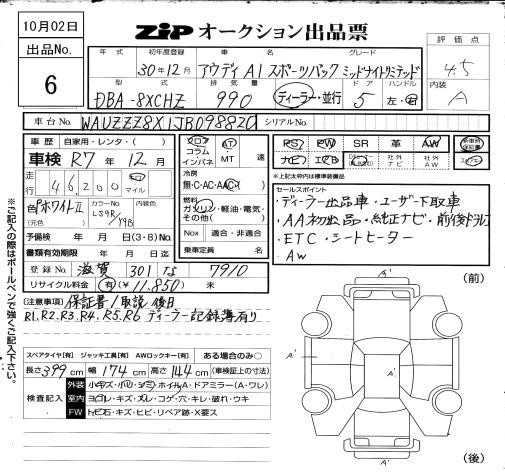 10月02日
ZIP オークション出品票
出品No. 6
年式 初年度登録 車名 グレード
30年12月 アウディ A1 スポーツバック ミッドナイトリミテッド
評価点 4.5
内装 A
型式 排気量 ドア ハンドル
DBA-8XCHZ 990 ディーラー・並行 5 左・右
車台No. WAUZZZ8X1JB098820 シリアルNo.
車歴 自家用・レンタ・( )
車検 R7年12月
フロア コラム インパネ
AT MT 速
PS PW SR 革 AW
ナビ エアB 社外ナビ 社外AW
※上記太枠内は標準装備
走行 46,200 Km マイル
冷房 無・C・AC・AAC
色 ホワイトⅡ (元色) カラーNo. LS9R/Y9B 内装色
燃料 ガソリン・軽油・電気・その他( )
予備検 年 月 日(3・8)No.
書類有効期限 年 月 日迄
Nox 適合・非適合
乗車定員 名
登録No. 滋賀 301 な 7910
リサイクル料金 有(¥11,850) 未
セールスポイント
・ディーラー出品車・ユーザー下取車
・AA初出品・純正ナビ・前後ドラレコ
・ETC・シートヒーター
・AW
[注意事項] 保証書/取説 後日
R1.R2.R3.R4.R5.R6 ディーラー記録簿有り
スペアタイヤ[有] ジャッキ工具[有] AWロックキー[有] ある場合のみ○
長さ399cm 幅174cm 高さ144cm (車検証上の寸法)
検査記入
外装 小キズ・小凹・シミ・ホイルA・ドアミラー(A・ワレ)
室内 ヨゴレ・キズ・スレ・コゲ・穴・キレ・破れ・ウキ
FW トビ石・キズ・ヒビ・リペア跡・X要ス
(前)
A'
A'
A'
(後)
※ご記入の際はボールペンで強くご記入下さい。